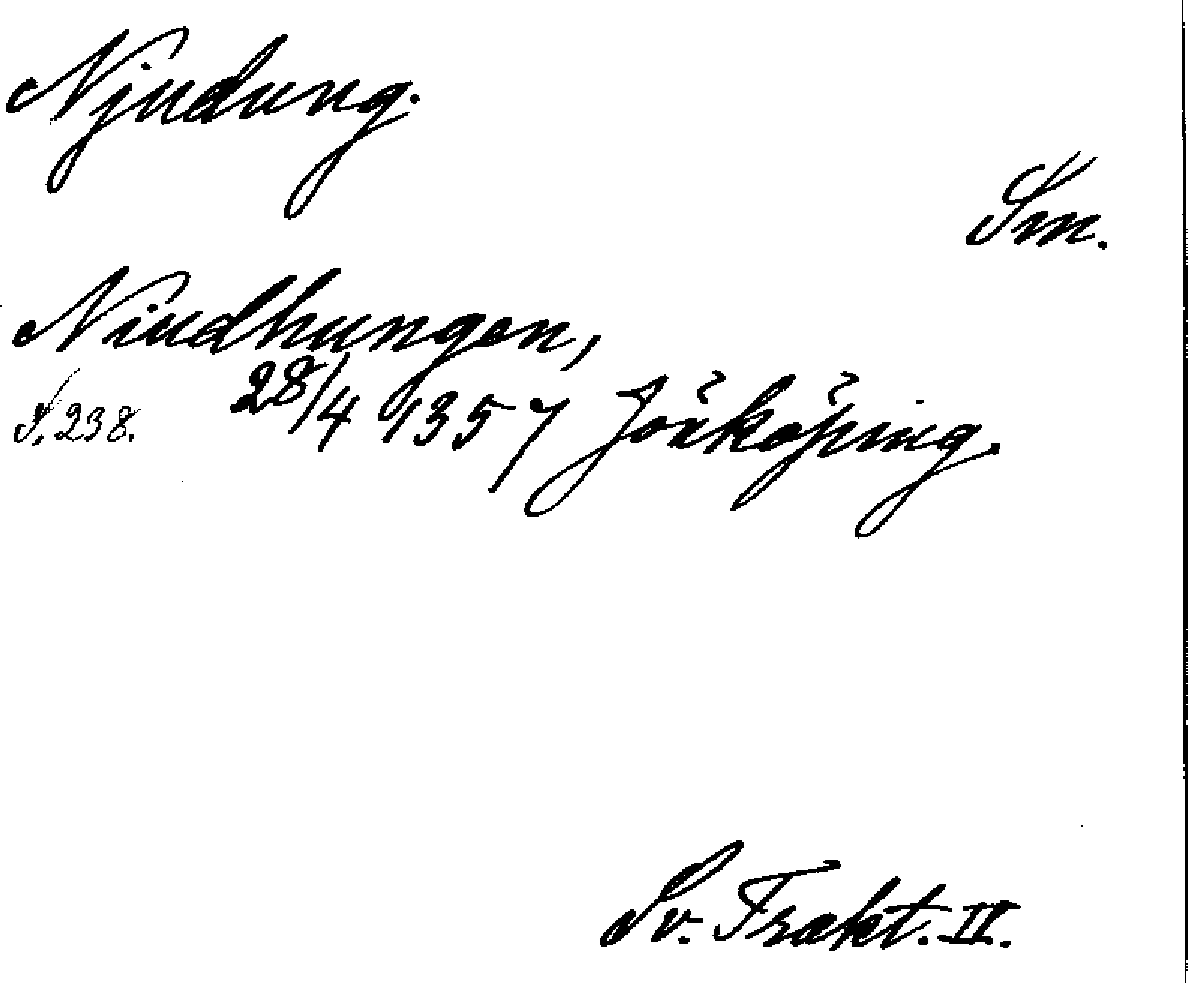 Njudung.
Sm.
Niudhungen,
S. 238. 28/4 1357 Jönköping.
Sv. Trakt. II.